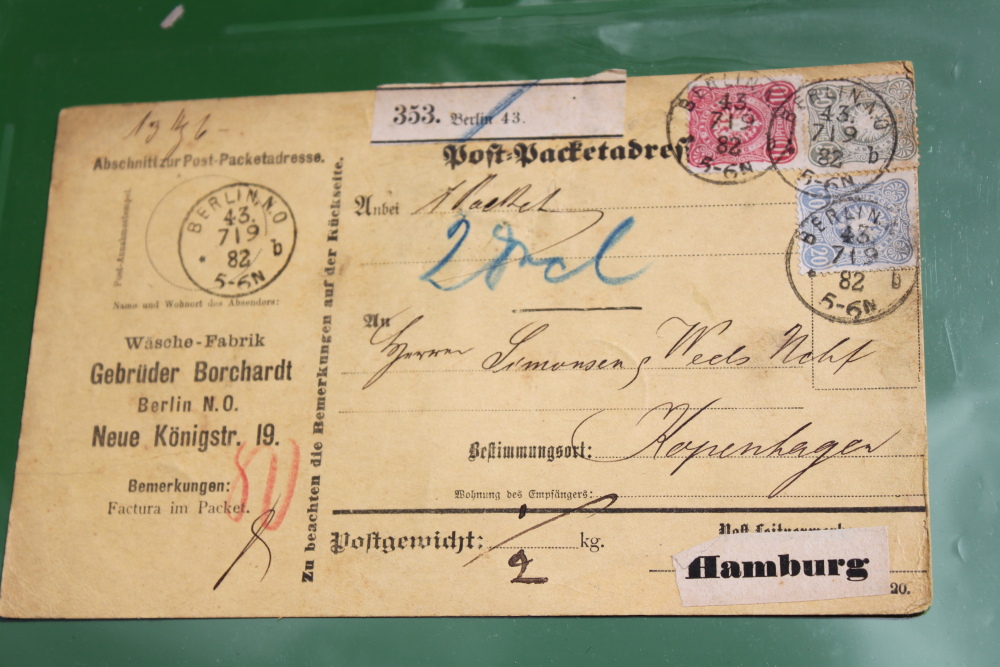 353. Berlin 43.
Post-Packetadres
Abschnitt zur Post-Packetadresse.
Post-Annahmestempel.
BERLIN, N.O
43.
7 I 9
82 b
5-6N
Name und Wohnort des Absenders:
Wäsche-Fabrik
Gebrüder Borchardt
Berlin N.O.
Neue Königstr. 19.
80
Bemerkungen:
Factura im Packet.
Zu beachten die Bemerkungen auf der Rückseite.
Anbei 1 Packet
2 Decl
An
Herren Simonsen & Weels Nchf
Bestimmungsort: Kopenhagen
Wohnung des Empfängers:
Postgewicht: 1/2 kg.
Post-Leitvermerk
Hamburg
20.
10 PFENNIG 10
BERLIN, N.O
43.
7 I 9
82
5-6N
BERLIN, N.O
43.
7 I 9
82 b
5-6N
20
BERLIN,
43.
7 I 9
82 b
5-6N